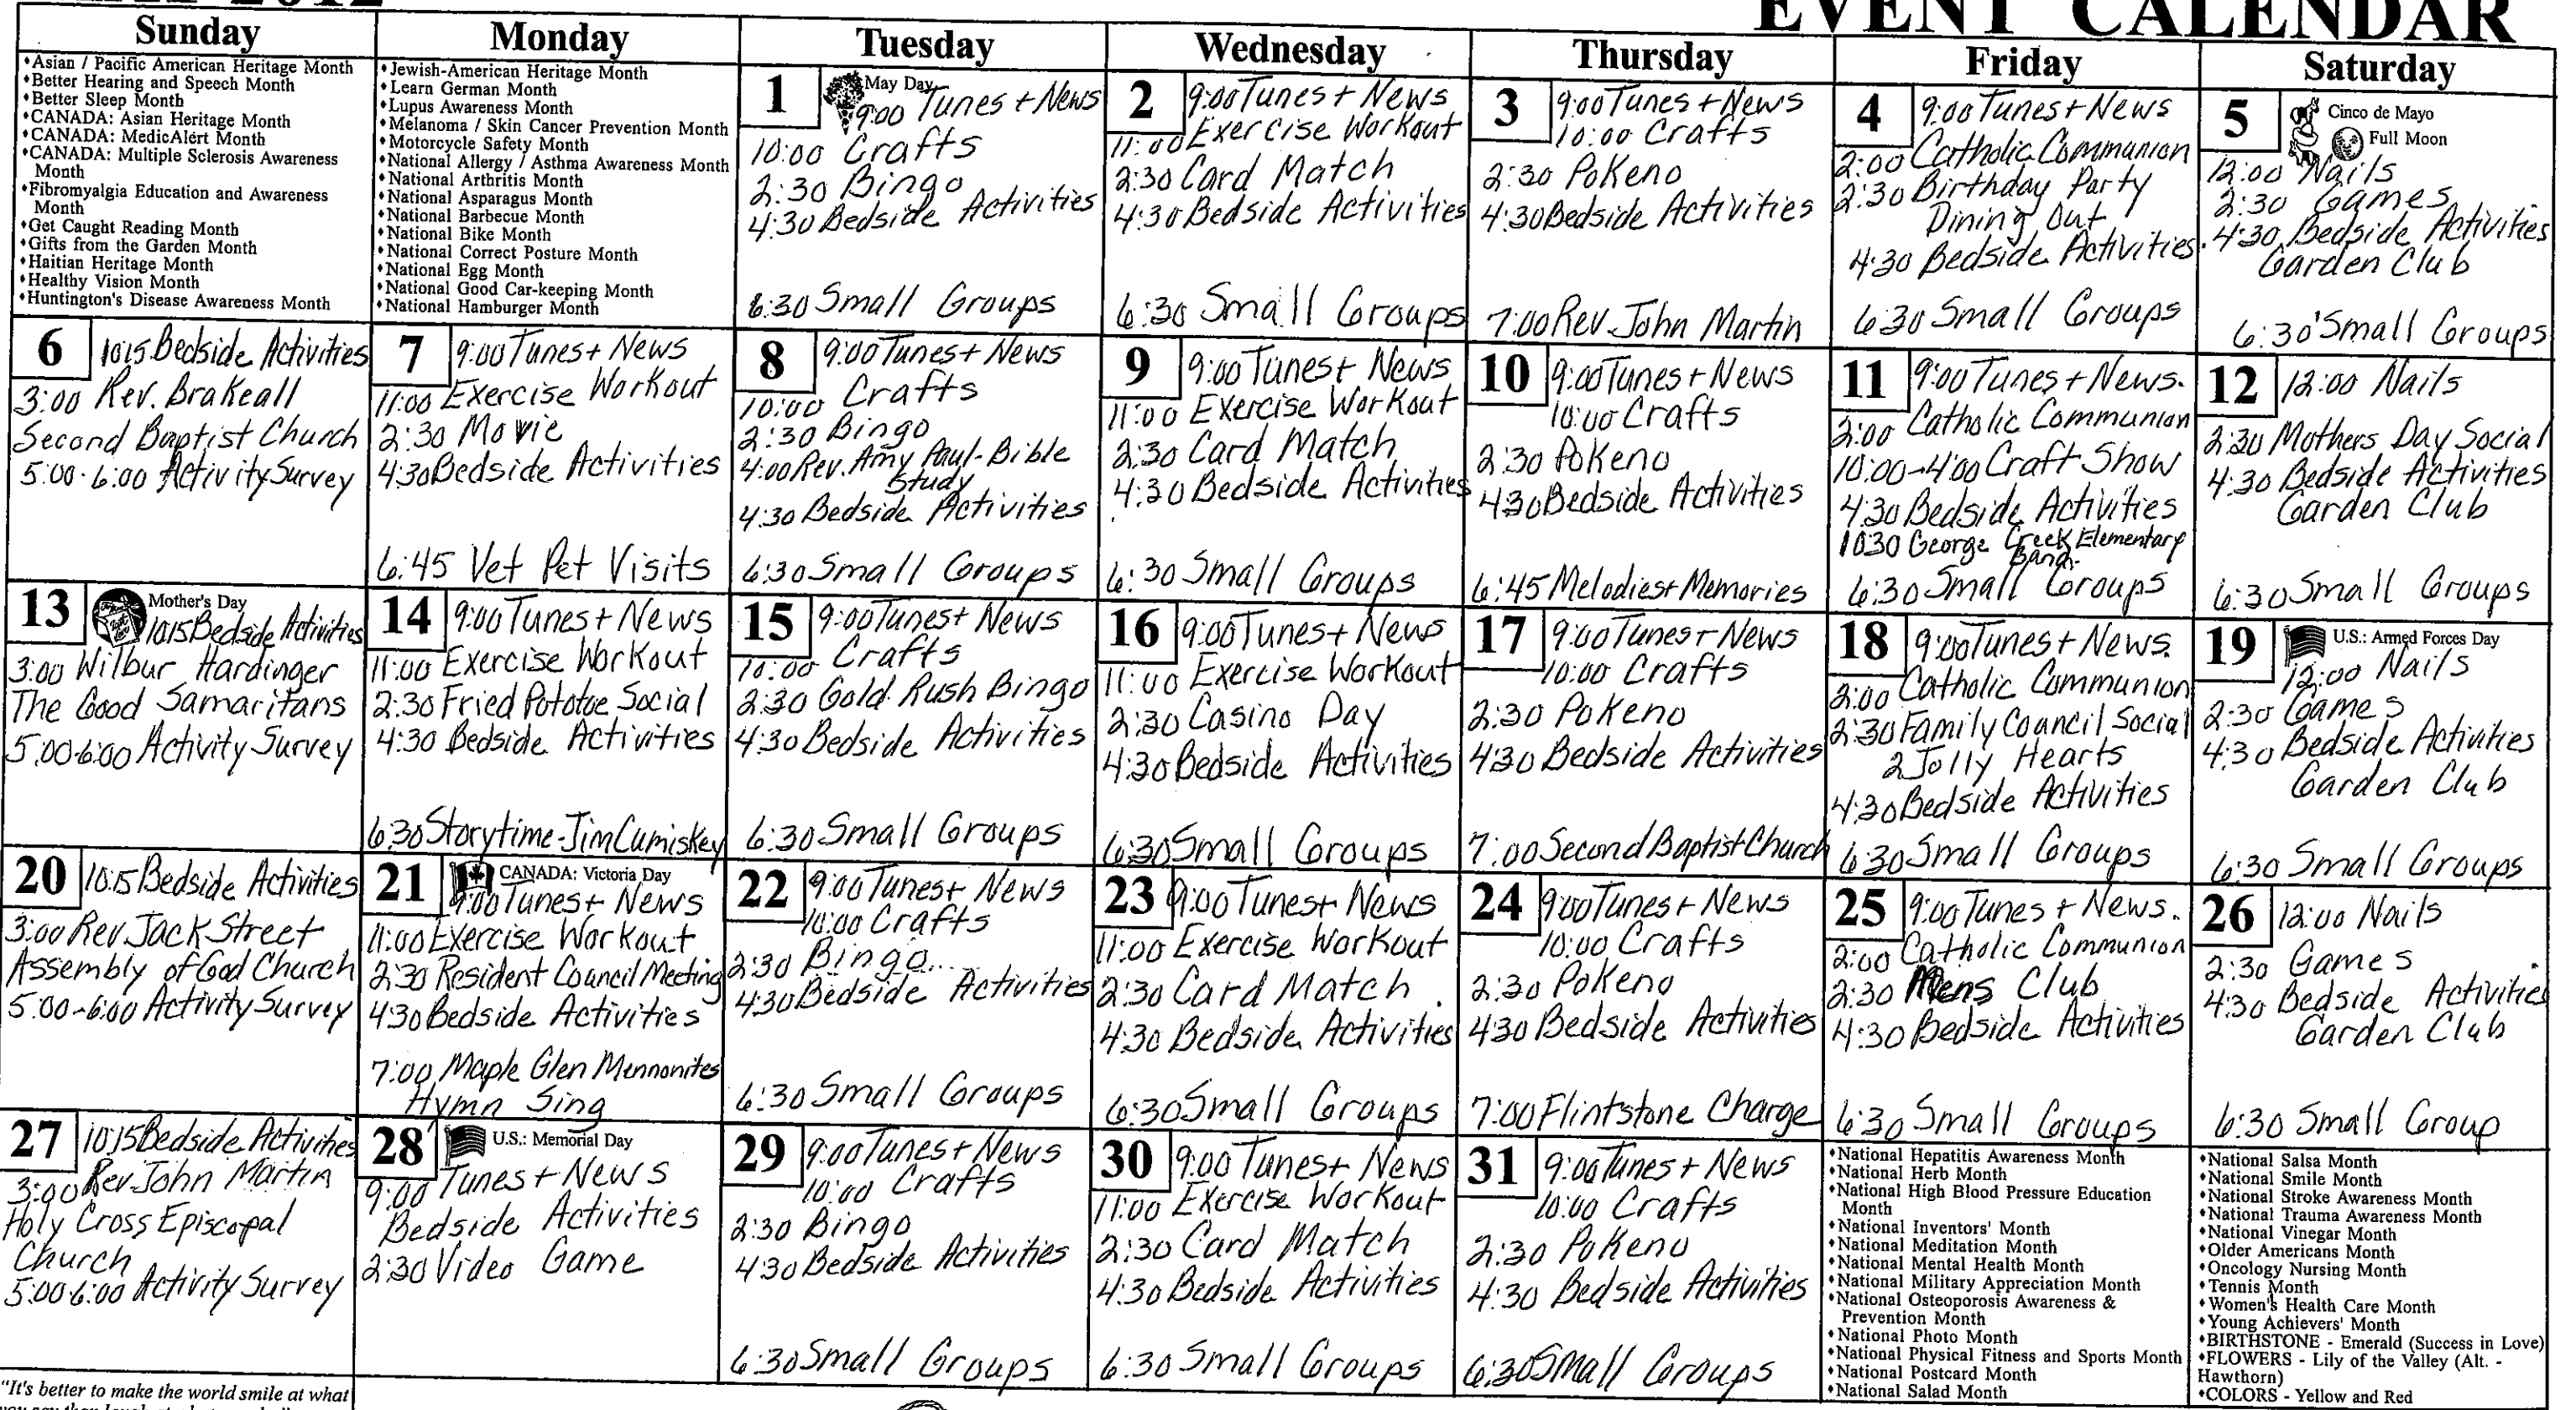 2012
EVENT CALENDAR
Sunday
Monday
Tuesday
Wednesday
Thursday
Friday
Saturday
♦Asian / Pacific American Heritage Month
♦Better Hearing and Speech Month
♦Better Sleep Month
♦CANADA: Asian Heritage Month
♦CANADA: MedicAlert Month
♦CANADA: Multiple Sclerosis Awareness
Month
♦Fibromyalgia Education and Awareness
Month
♦Get Caught Reading Month
♦Gifts from the Garden Month
♦Haitian Heritage Month
♦Healthy Vision Month
♦Huntington's Disease Awareness Month
♦Jewish-American Heritage Month
♦Learn German Month
♦Lupus Awareness Month
♦Melanoma / Skin Cancer Prevention Month
♦Motorcycle Safety Month
♦National Allergy / Asthma Awareness Month
♦National Arthritis Month
♦National Asparagus Month
♦National Barbecue Month
♦National Bike Month
♦National Correct Posture Month
♦National Egg Month
♦National Good Car-keeping Month
♦National Hamburger Month
1
May Day
9:00 Tunes + News
10:00 Crafts
2:30 Bingo
4:30 Bedside Activities
6:30 Small Groups
2
9:00 Tunes + News
11:00 Exercise Workout
2:30 Card Match
4:30 Bedside Activities
6:30 Small Groups
3
9:00 Tunes + News
10:00 Crafts
2:30 Pokeno
4:30 Bedside Activities
7:00 Rev. John Martin
4
9:00 Tunes + News
2:00 Catholic Communion
2:30 Birthday Party
Dining Out
4:30 Bedside Activities
6:30 Small Groups
5
Cinco de Mayo
Full Moon
12:00 Nails
2:30 Games
4:30 Bedside Activities
Garden Club
6:30 Small Groups
6
10:15 Bedside Activities
3:00 Rev. Brakeall
Second Baptist Church
5:00-6:00 Activity Survey
7
9:00 Tunes + News
11:00 Exercise Workout
2:30 Movie
4:30 Bedside Activities
6:45 Vet Pet Visits
8
9:00 Tunes + News
10:00 Crafts
2:30 Bingo
4:00 Rev. Amy Paul-Bible
Study
4:30 Bedside Activities
6:30 Small Groups
9
9:00 Tunes + News
11:00 Exercise Workout
2:30 Card Match
4:30 Bedside Activities
6:30 Small Groups
10
9:00 Tunes + News
10:00 Crafts
2:30 Pokeno
4:30 Bedside Activities
6:45 Melodies + Memories
11
9:00 Tunes + News.
2:00 Catholic Communion
10:00-4:00 Craft Show
4:30 Bedside Activities
10:30 George Creek Elementary
Band
6:30 Small Groups
12
12:00 Nails
2:30 Mothers Day Social
4:30 Bedside Activities
Garden Club
6:30 Small Groups
13
Mother's Day
10:15 Bedside Activities
3:00 Wilbur Hardinger
The Good Samaritans
5:00-6:00 Activity Survey
14
9:00 Tunes + News
11:00 Exercise Workout
2:30 Fried Pototoe Social
4:30 Bedside Activities
6:30 Storytime-Jim Cumiskey
15
9:00 Tunes + News
10:00 Crafts
2:30 Gold Rush Bingo
4:30 Bedside Activities
6:30 Small Groups
16
9:00 Tunes + News
11:00 Exercise Workout
2:30 Casino Day
4:30 Bedside Activities
6:30 Small Groups
17
9:00 Tunes + News
10:00 Crafts
2:30 Pokeno
4:30 Bedside Activities
7:00 Second Baptist Church
18
9:00 Tunes + News.
2:00 Catholic Communion
2:30 Family Council Social
2 Jolly Hearts
4:30 Bedside Activities
6:30 Small Groups
19
U.S.: Armed Forces Day
12:00 Nails
2:30 Games
4:30 Bedside Activities
Garden Club
6:30 Small Groups
20
10:15 Bedside Activities
3:00 Rev Jack Street
Assembly of God Church
5:00-6:00 Activity Survey
21
CANADA: Victoria Day
9:00 Tunes + News
11:00 Exercise Workout
2:30 Resident Council Meeting
4:30 Bedside Activities
7:00 Maple Glen Mennonites
Hymn Sing
22
9:00 Tunes + News
10:00 Crafts
2:30 Bingo
4:30 Bedside Activities
6:30 Small Groups
23
9:00 Tunes + News
11:00 Exercise Workout
2:30 Card Match
4:30 Bedside Activities
6:30 Small Groups
24
9:00 Tunes + News
10:00 Crafts
2:30 Pokeno
4:30 Bedside Activities
7:00 Flintstone Charge
25
9:00 Tunes + News.
2:00 Catholic Communion
2:30 Mens Club
4:30 Bedside Activities
6:30 Small Groups
26
12:00 Nails
2:30 Games
4:30 Bedside Activities
Garden Club
6:30 Small Group
27
10:15 Bedside Activities
3:00 Rev John Martin
Holy Cross Episcopal
Church
5:00-6:00 Activity Survey
28
U.S.: Memorial Day
9:00 Tunes + News
Bedside Activities
2:30 Video Game
29
9:00 Tunes + News
10:00 Crafts
2:30 Bingo
4:30 Bedside Activities
6:30 Small Groups
30
9:00 Tunes + News
11:00 Exercise Workout
2:30 Card Match
4:30 Bedside Activities
6:30 Small Groups
31
9:00 Tunes + News
10:00 Crafts
2:30 Pokeno
4:30 Bedside Activities
6:30 Small Groups
♦National Hepatitis Awareness Month
♦National Herb Month
♦National High Blood Pressure Education
Month
♦National Inventors' Month
♦National Meditation Month
♦National Mental Health Month
♦National Military Appreciation Month
♦National Osteoporosis Awareness &
Prevention Month
♦National Photo Month
♦National Physical Fitness and Sports Month
♦National Postcard Month
♦National Salad Month
♦National Salsa Month
♦National Smile Month
♦National Stroke Awareness Month
♦National Trauma Awareness Month
♦National Vinegar Month
♦Older Americans Month
♦Oncology Nursing Month
♦Tennis Month
♦Women's Health Care Month
♦Young Achievers' Month
♦BIRTHSTONE - Emerald (Success in Love)
♦FLOWERS - Lily of the Valley (Alt. -
Hawthorn)
♦COLORS - Yellow and Red
"It's better to make the world smile at what